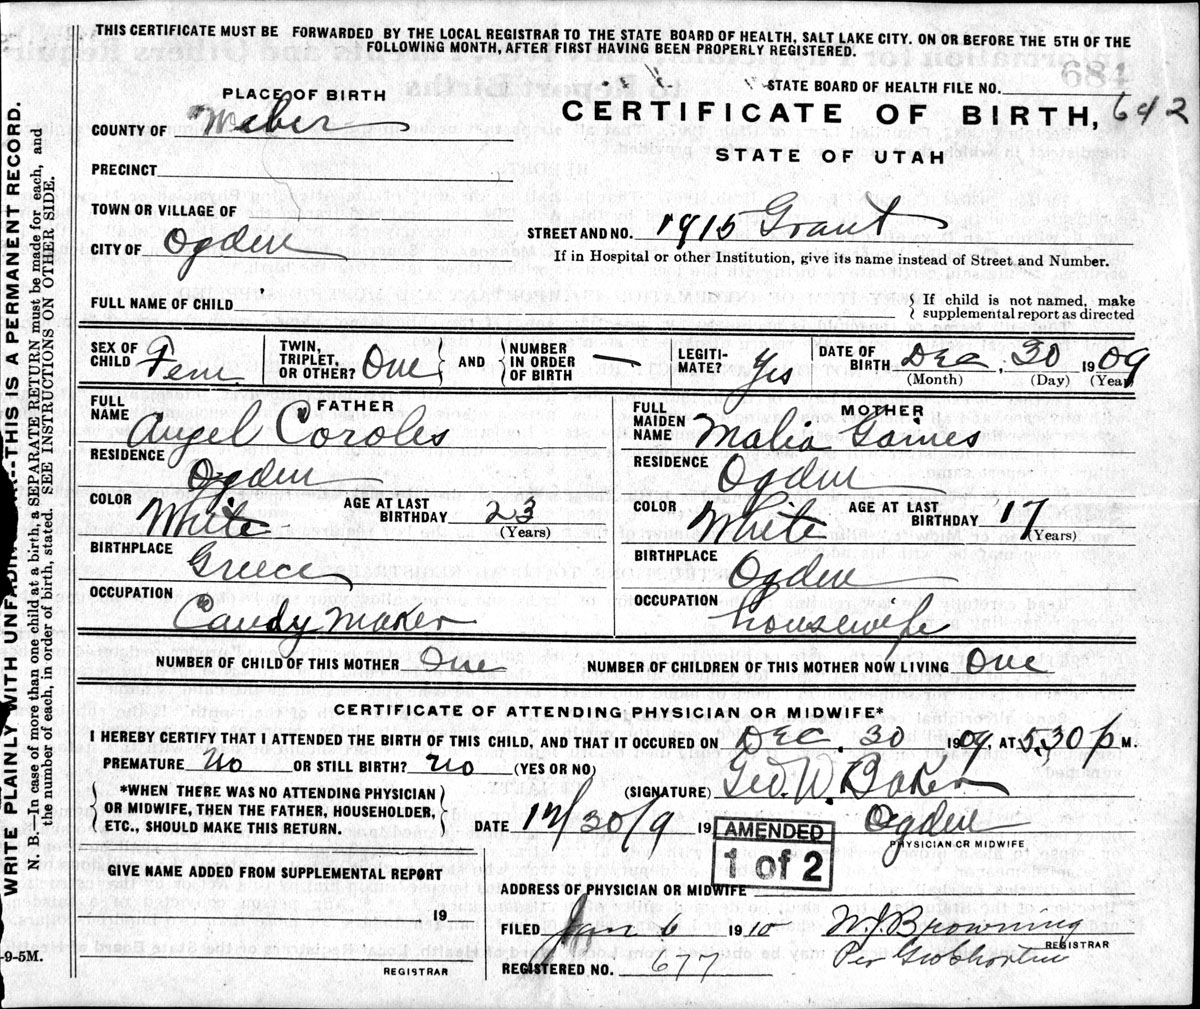 THIS CERTIFICATE MUST BE FORWARDED BY THE LOCAL REGISTRAR TO THE STATE BOARD OF HEALTH, SALT LAKE CITY. ON OR BEFORE THE 5TH OF THE
FOLLOWING MONTH, AFTER FIRST HAVING BEEN PROPERLY REGISTERED.
PLACE OF BIRTH
STATE BOARD OF HEALTH FILE NO.
CERTIFICATE OF BIRTH, 642
STATE OF UTAH
COUNTY OF Weber
PRECINCT
TOWN OR VILLAGE OF
CITY OF Ogden
STREET AND NO. 1915 Grant
If in Hospital or other Institution, give its name instead of Street and Number.
FULL NAME OF CHILD
If child is not named, make
supplemental report as directed
SEX OF CHILD Fem.
TWIN, TRIPLET, OR OTHER? One AND NUMBER IN ORDER OF BIRTH —
LEGITI- MATE? Yes
DATE OF BIRTH Dec. 30 1909
(Month) (Day) (Year)
FATHER
FULL NAME Angel Coroles
RESIDENCE Ogden
COLOR White AGE AT LAST BIRTHDAY 23 (Years)
BIRTHPLACE Greece
OCCUPATION Candy maker
MOTHER
FULL MAIDEN NAME Malia Gaines
RESIDENCE Ogden
COLOR White AGE AT LAST BIRTHDAY 17 (Years)
BIRTHPLACE Ogden
OCCUPATION housewife
NUMBER OF CHILD OF THIS MOTHER One NUMBER OF CHILDREN OF THIS MOTHER NOW LIVING One
CERTIFICATE OF ATTENDING PHYSICIAN OR MIDWIFE*
I HEREBY CERTIFY THAT I ATTENDED THE BIRTH OF THIS CHILD, AND THAT IT OCCURED ON Dec. 30 1909, AT 5.30 p M.
PREMATURE No OR STILL BIRTH? No (YES OR NO)
(SIGNATURE) Geo. W. Baker
*WHEN THERE WAS NO ATTENDING PHYSICIAN
OR MIDWIFE, THEN THE FATHER, HOUSEHOLDER,
ETC., SHOULD MAKE THIS RETURN.
DATE 12/30/9 19
Ogden
PHYSICIAN OR MIDWIFE
AMENDED
1 of 2
GIVE NAME ADDED FROM SUPPLEMENTAL REPORT
19
REGISTRAR
ADDRESS OF PHYSICIAN OR MIDWIFE
FILED Jan 6 1910 W. J. Browning
REGISTRAR
Per
REGISTERED NO. 677
-9-5M.
WRITE PLAINLY WITH UNFADING --THIS IS A PERMANENT RECORD.
N. B.—In case of more than one child at a birth, a SEPARATE RETURN must be made for each, and
the number of each, in order of birth, stated. SEE INSTRUCTIONS ON OTHER SIDE.
684